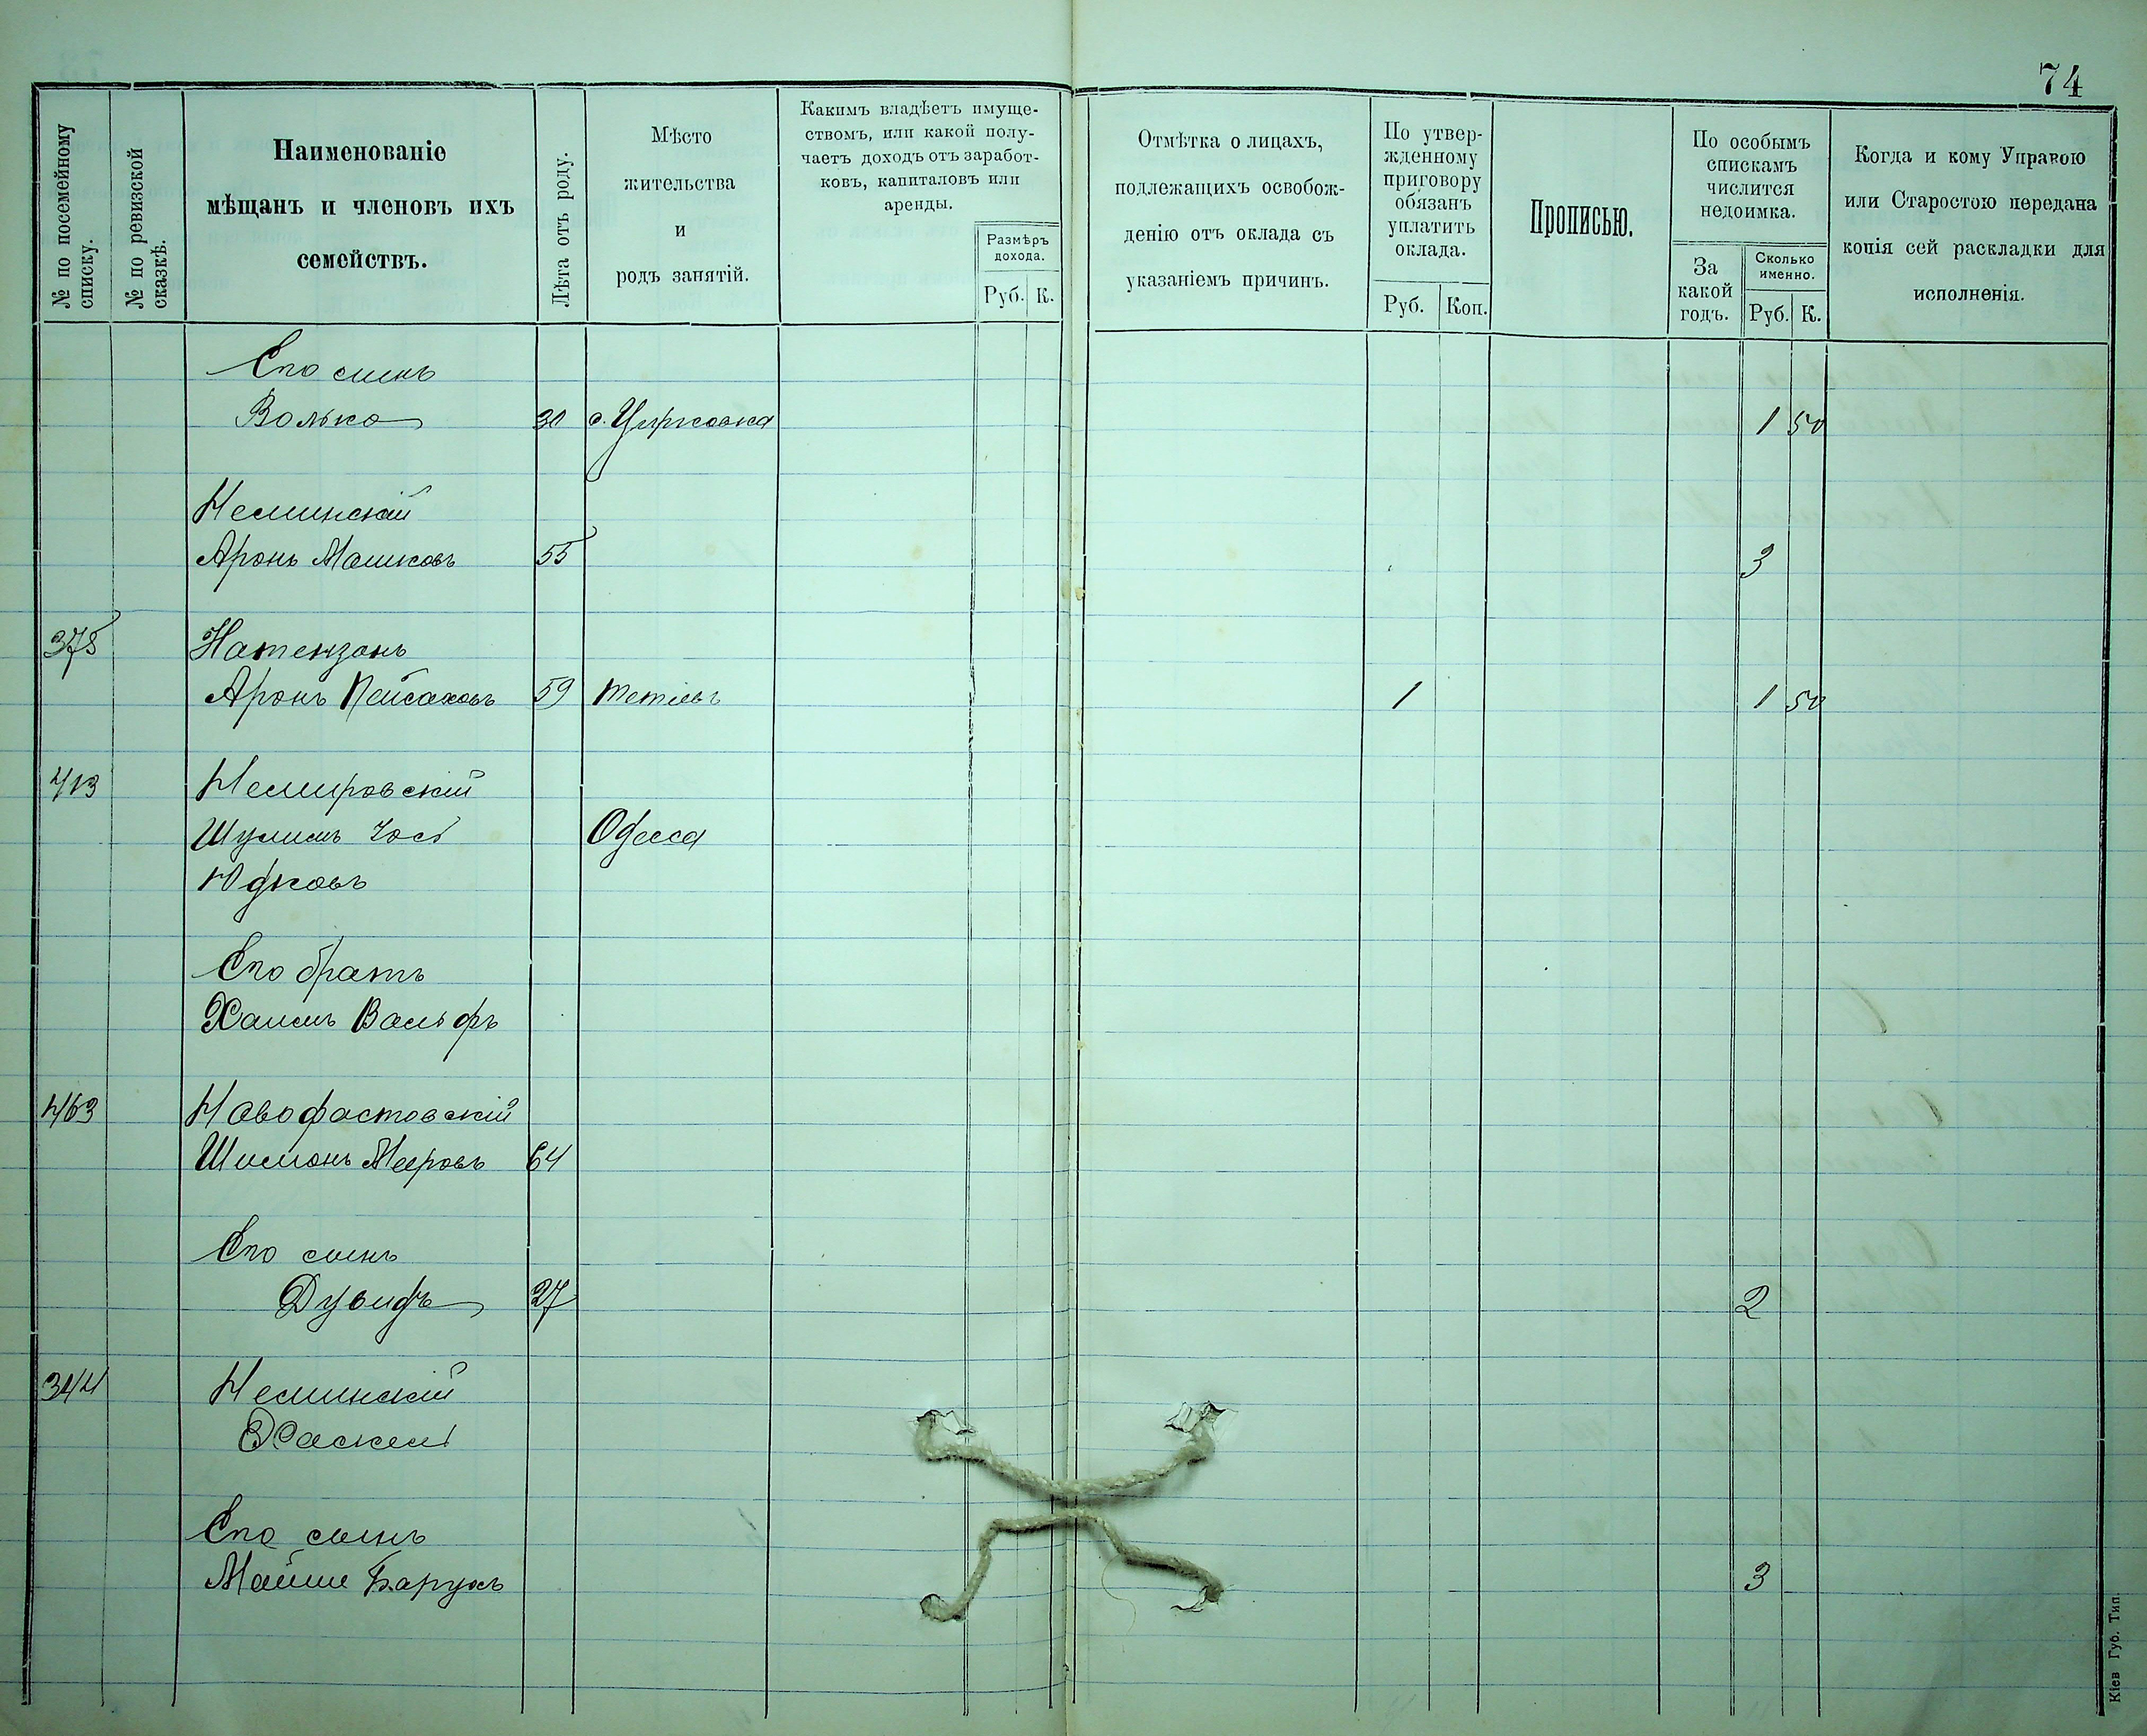 74
№ по посемейному
списку.
№ по ревизской
сказкѣ.
Наименованіе
мѣщанъ и членовъ ихъ
семействъ.
Лѣта отъ роду.
Мѣсто
жительства
и
родъ занятій.
Какимъ владѣетъ имуще-
ствомъ, или какой полу-
чаетъ доходъ отъ заработ-
ковъ, капиталовъ или
аренды.
Размѣръ
дохода.
Руб. К.
Отмѣтка о лицахъ,
подлежащихъ освобож-
денію отъ оклада съ
указаніемъ причинъ.
По утвер-
жденному
приговору
обязанъ
уплатить
оклада.
Руб. Коп.
Прописью.
По особымъ
спискамъ
числится
недоимка.
За
какой
годъ.
Сколько
именно.
Руб. К.
Когда и кому Управою
или Старостою передана
копія сей раскладки для
исполненія.
Его сынъ
Волько 30 с. 1 50
Неминскій
Аронъ Машковъ 55 3
375 Натензонъ
Аронъ Пейсаховъ 59 Тетіевъ 1 1 50
413 Немировскій
Шулимъ Іось Одесса
Юдковъ
Его братъ
Хаимъ Вольфъ
463 Новофастовскій
Шимонъ Мееровъ 64
Его сынъ
Дувидъ 27 2
344 Неминскій
Хаскель
Его сынъ
Мойше Барухъ 3
Кіев Губ. Тип.